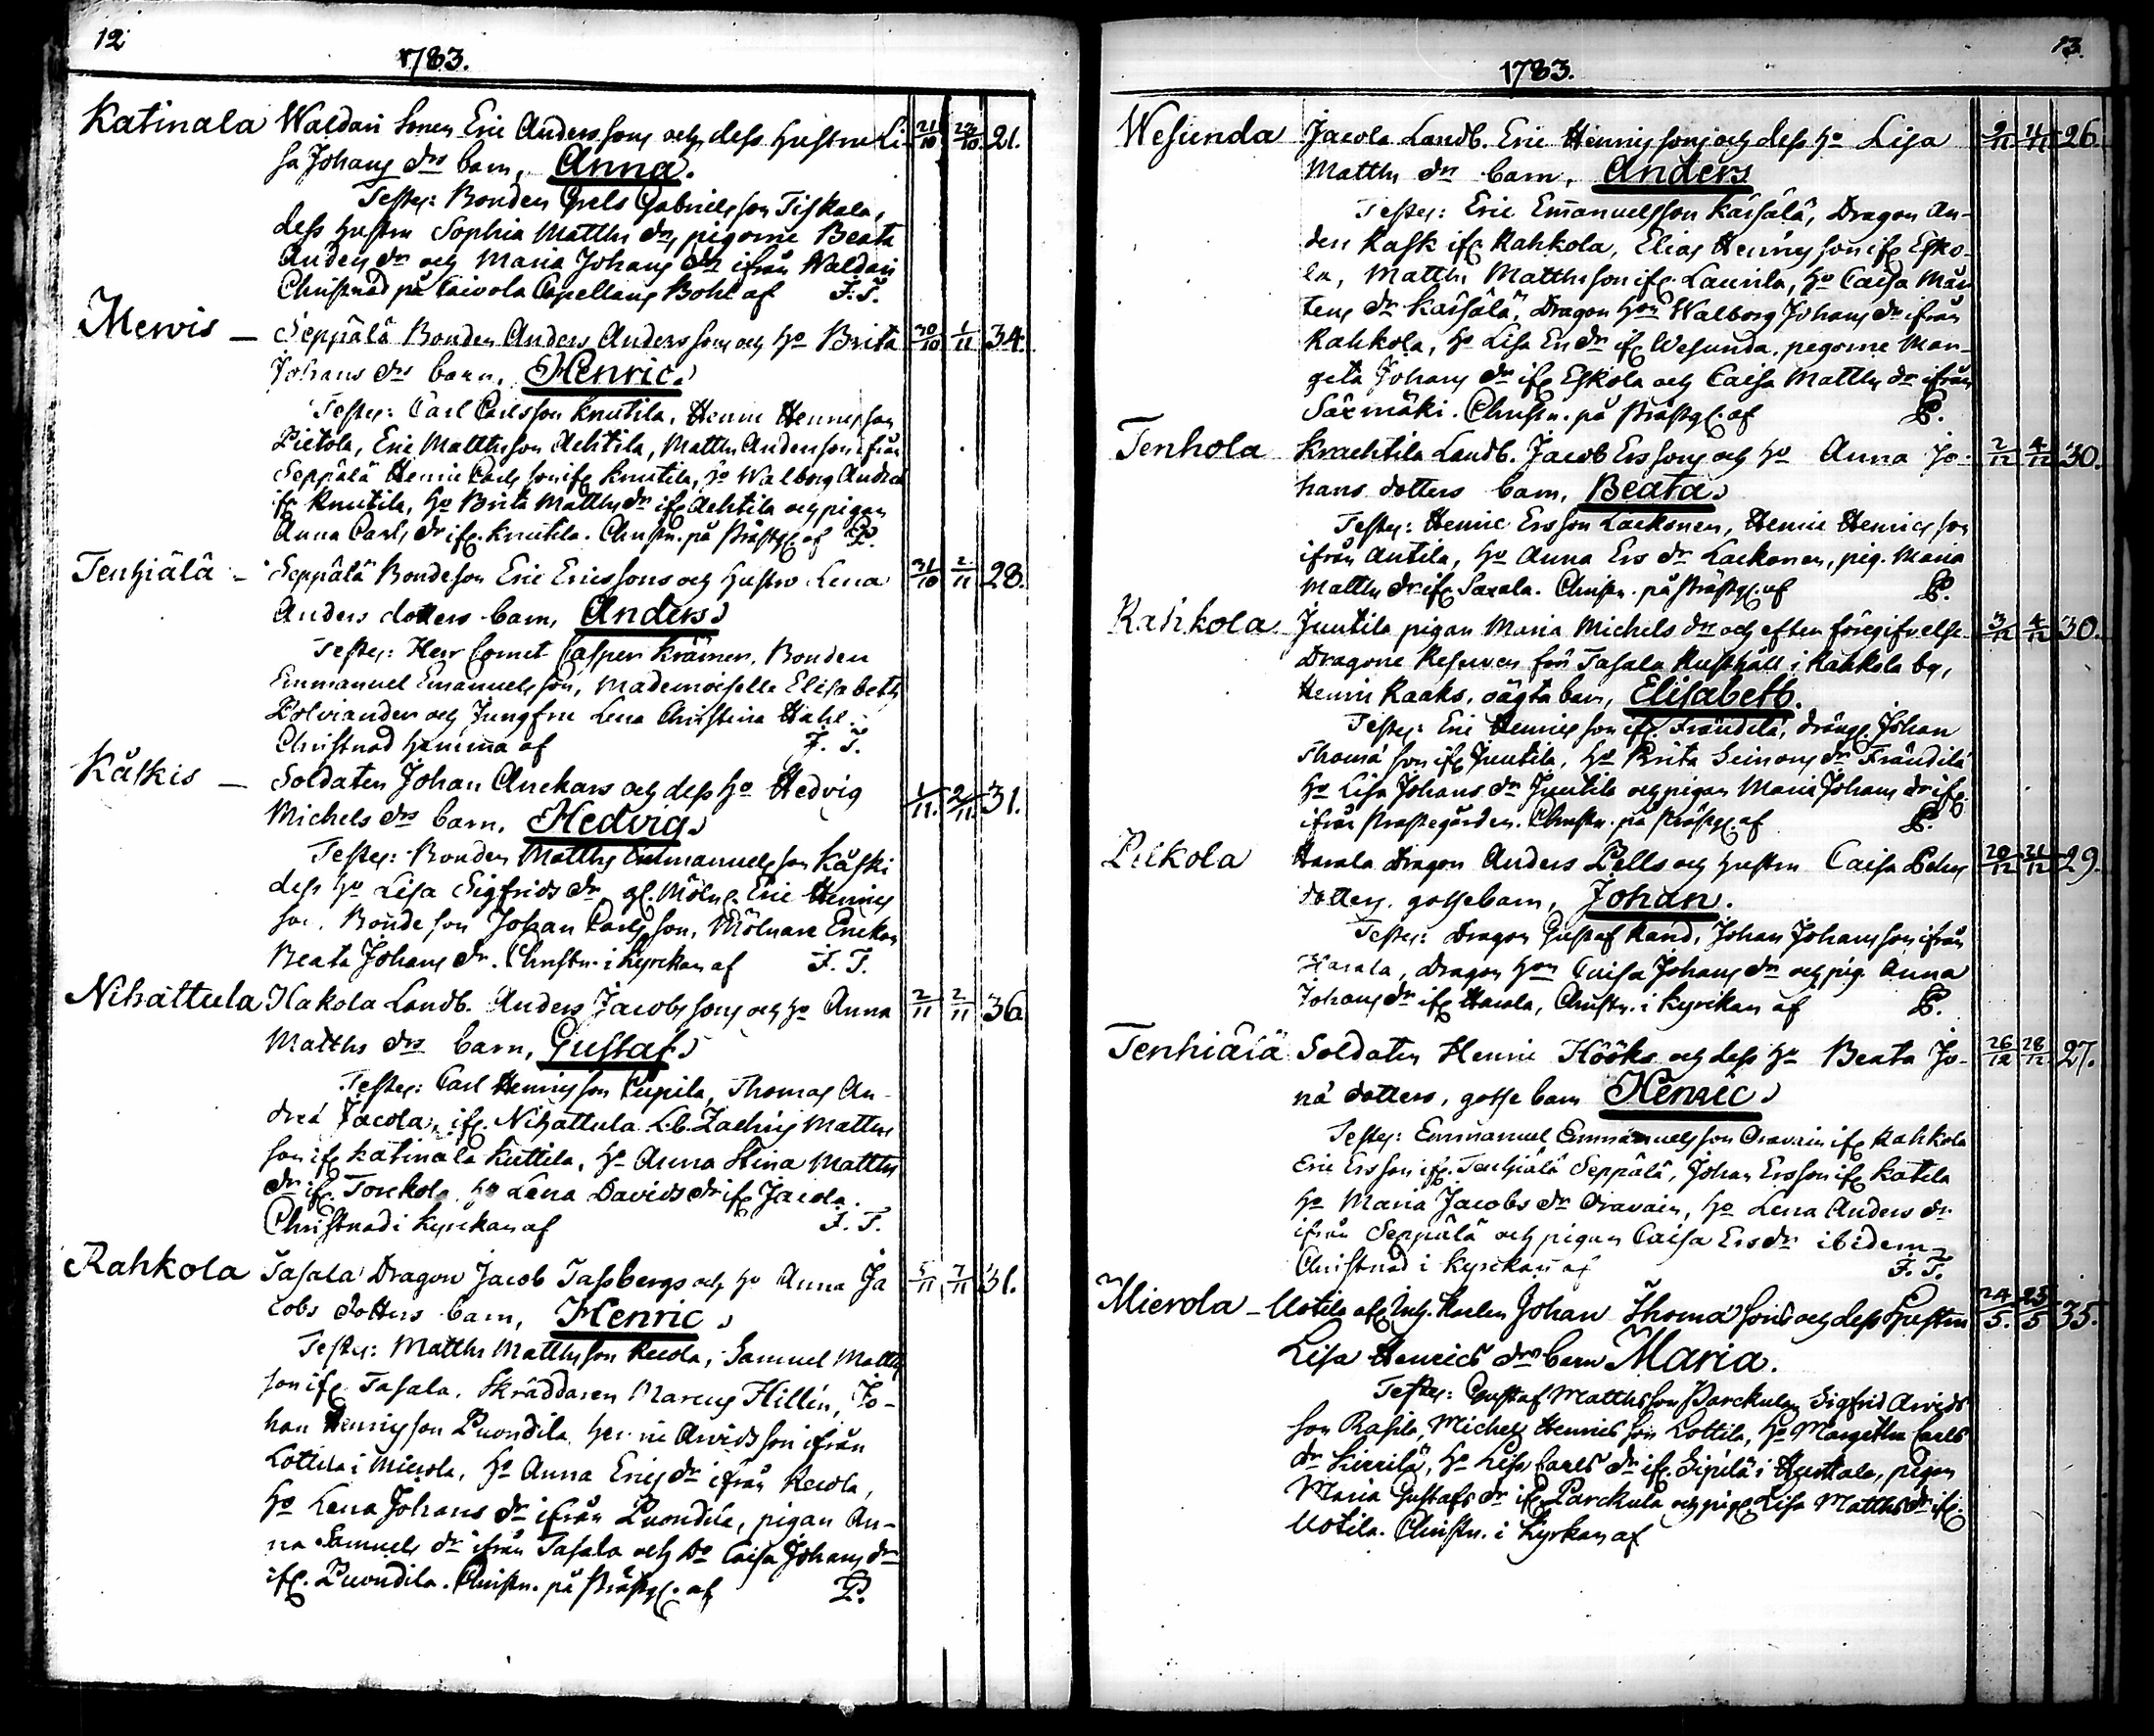 12
1783.
Katinala Waldari Sonen Eric Anderssons och dess hustru Li- 21/10 23/10 21.
sa Johans drs barn, Anna.
Testes: Bonden Grels Gabrielsson Tiskala,
dess hustru Sophia Matths dr, pigorne Beata
Anders dr och Maria Johans dr ifrån Waldari
Christnad på Caivola Capellans Bohl af F. T.
Mervis – Seppälä Bonden Anders Anderssons och ho Brita 30/10 1/11 34.
Johans drs barn, Henric.
Testes: Carl Carlsson Knutila, Henric Henricsson
Pietola, Eric Matthsson Achtila, Matths Andersson ifrån
Seppälä Henric Carlsson ifr. Knutila, ho Walborg Andrs dr
ifr. Knutila, ho Brita Matths dr ifr. Achtila och pigan
Anna Carls dr ifr. Knutila. Christn. på Prästg. af P.
Tenhiälä – Seppälä Bondeson Eric Ericssons och hustru Lena 31/10 2/11 28.
Anders dotters barn, Anders.
Testes: Herr Cornet Casper Krämer, Bonden
Emmanuel Emanuelsson, Mademoiselle Elisabeth
Polviander och Jungfru Lena Christina Hahl.
Christnad hemma af F. T.
Kåskis – Soldaten Johan Anckars och dess ho Hedvig 1/11. 2/11 31.
Michels drs barn, Hedvig.
Testes: Bonden Matths Emmanuelsson Kåski
dess ho Lisa Sigfrids dr, gl. Möln. Eric Henrics
son, Bonde son Johan Carlsson, Mölnare Enckan
Beata Johans dr. Christn. i Kyrckan af F. T.
Nihattula Hakola Landb. Anders Jacobssons och ho Anna 2/11 2/11 36
Matths drs barn, Gustaf.
Testes: Carl Henricsson Pipila, Thomas An-
dreæ Jacola, ifr. Nihattula L.b. Zachris Matths
son ifr. Katinala Kuttila, ho Anna Stina Matths
dr ifr. Torckola, ho Lena Davids dr ifr. Jacola.
Christnad i Kyrckan af F. T.
Rahkola Tasala Dragon Jacob Tassbergs och ho Anna Ja 5/11 7/11 31.
cobs dotters barn, Henric.
Testes: Matths Matthsson Recola, Samuel Matths
son ifr. Tasala, Skräddaren Marcus Hillén, Jo-
han Henricsson Puondila, Henric Arvidsson ifrån
Lottila i Mierola, ho Anna Erics dr ifrån Recola,
ho Lena Johans dr ifrån Puondila, pigan An-
na Samuels dr ifrån Tasala och Do Caisa Johans dr
ifr. Puondila. Christn. på Prästg. af P.
13.
1783.
Wesunda Jacola Landb. Eric Henricssons och dess ho Lisa 9/11. 11/11 26.
Matths drs barn, Anders
Testes: Eric Emanuelsson Kärsälä, Dragon An-
ders Rask ifr. Rahkola, Elias Henricsson ifr. Esko-
la, Matths Matthsson ifr. Laurila, ho Caisa Mår
tens dr Kärsälä, Dragon hon Walborg Johans dr ifrån
Rahkola, ho Lisa Ers dr ifr. Wesunda, pigorne Mar-
geta Johans dr ifr. Eskola och Caisa Matths dr ifrån
Säxmäki. Christn. på Prästg. af P.
Tenhola Krachtila Landb. Jacob Erssons och ho Anna Jo- 2/12 4/12 30.
hans dotters barn, Beata.
Testes: Henric Ersson Lackonen, Henric Henricsson
ifrån Antila, ho Anna Ers dr Lackonen, pig. Maria
Matths dr ifr. Saxala. Christn. på Prästg. af P.
Rahkola Juutila pigan Maria Michels drs och efter föregifvelse 3/12 4/12 30.
Dragone Reserven från Tasala Rusthåll i Rahkola by,
Henric Raaks, oägta barn, Elisabeth.
Testes: Eric Henricsson ifr. Frändilä, dräng. Johan
Thomæ son ifr. Juutila, ho Brita Seimons dr Frändilä
ho Lisa Johans dr Juutila och pigan Maria Johans dr ifr.
ifrån Prästegården. Christn. på Prästg. af P.
Pelkola Harala Dragon Anders Pells och hustru Caisa Pehrs 20/12 21/12 29.
dotters, gossebarn, Johan.
Testes: Dragon Gustaf Rand, Johan Johansson ifrån
Harala, dragon hon Caisa Johans dr och pig. Anna
Johans dr ifr. Harala, Christn. i Kyrckan af P.
Tenhiälä Soldaten Henric Hööks och dess ho Beata Jo- 26/12 28/12 27.
næ dotters, gosse barn Henric.
Testes: Emmanuel Emmanuelsson Oravain ifr. Rahkola
Eric Ersson ifr. Tenhiälä Seppälä, Johan Ersson ifr. Katila
ho Maria Jacobs dr Oravain, ho Lena Anders dr
ifrån Seppälä och pigan Caisa Ers dr ibidem –
Christnad i Kyrckan af F. T.
Mierola – Uotila Johan Thomæ Sons och dess Hustru 24/5. 25/5 35.
Lisa Henrics drs barn Maria.
Testes: Gustaf Matthsson Parckula, Sigfrid Arvids
son Rasila, Michel Henrics son Lottila, ho Margetha Carls
dr Kirrilä, ho Lisa Carls dr ifr. Sipilä i Hurttala, pigan
Maria Gustafs dr ifr. Parckula och pig. Lisa Matths dr ifr.
Uotila. Christn. i Kyrkan af